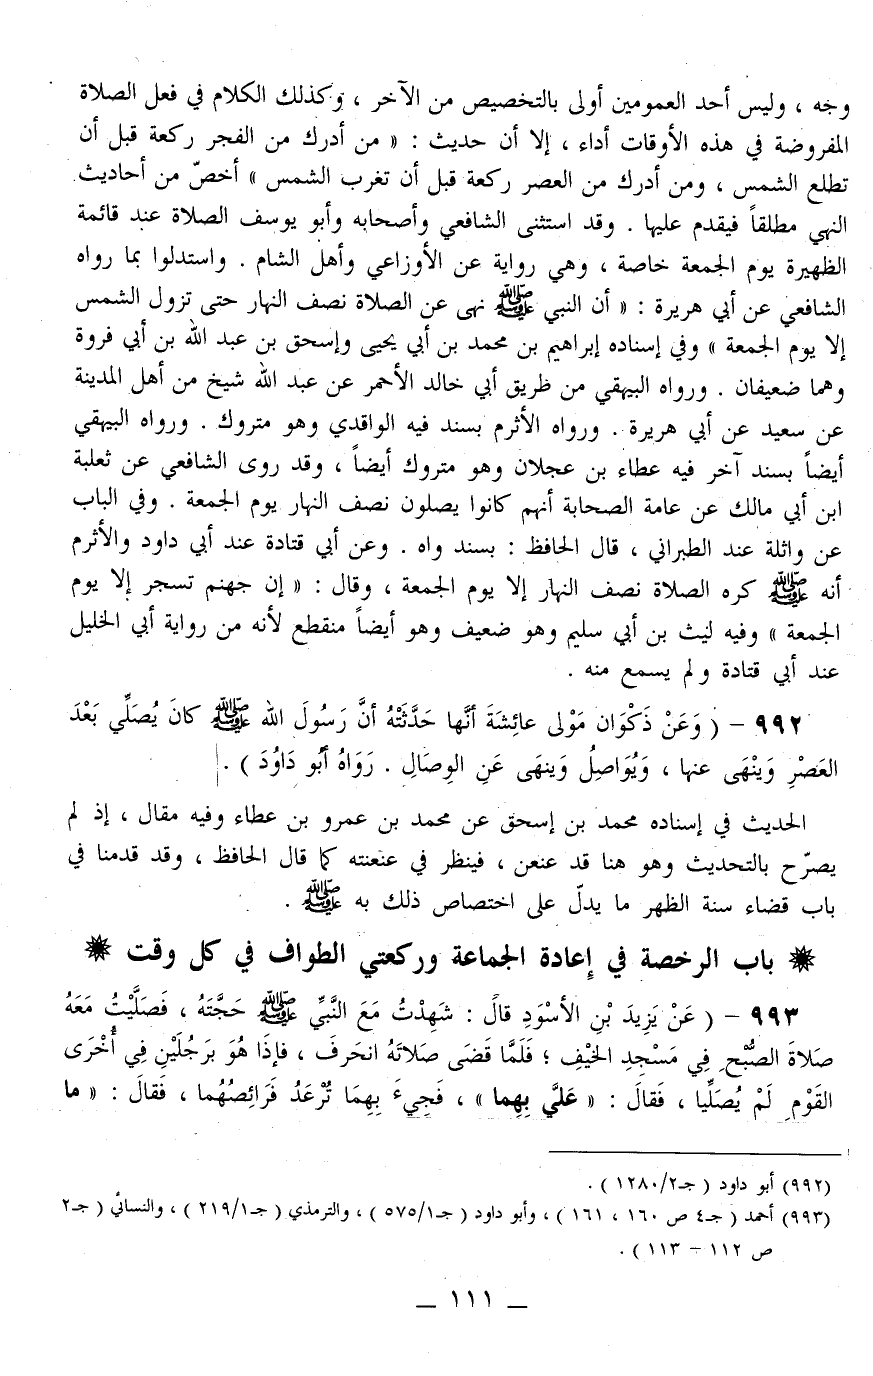 وجه ، وليس أحد العمومين أولى بالتخصيص من الآخر ، وكذلك الكلام في فعل الصلاة
المفروضة في هذه الأوقات أداء ، إلا أن حديث : « من أدرك من الفجر ركعة قبل أن
تطلع الشمس ، ومن أدرك من العصر ركعة قبل أن تغرب الشمس » أخصّ من أحاديث
النهي مطلقاً فيقدم عليها . وقد استثنى الشافعي وأصحابه وأبو يوسف الصلاة عند قائمة
الظهيرة يوم الجمعة خاصة ، وهي رواية عن الأوزاعي وأهل الشام . واستدلوا بما رواه
الشافعي عن أبي هريرة : « أن النبي ﷺ نهى عن الصلاة نصف النهار حتى تزول الشمس
إلا يوم الجمعة » وفي إسناده إبراهيم بن محمد بن أبي يحيى وإسحق بن عبد الله بن أبي فروة
وهما ضعيفان . ورواه البيهقي من طريق أبي خالد الأحمر عن عبد الله شيخ من أهل المدينة
عن سعيد عن أبي هريرة . ورواه الأثرم بسند فيه الواقدي وهو متروك . ورواه البيهقي
أيضاً بسند آخر فيه عطاء بن عجلان وهو متروك أيضاً ، وقد روى الشافعي عن ثعلبة
ابن أبي مالك عن عامة الصحابة أنهم كانوا يصلون نصف النهار يوم الجمعة . وفي الباب
عن واثلة عند الطبراني ، قال الحافظ : بسند واه . وعن أبي قتادة عند أبي داود والأثرم
أنه ﷺ كره الصلاة نصف النهار إلا يوم الجمعة ، وقال : « إن جهنم تسجر إلا يوم
الجمعة » وفيه ليث بن أبي سليم وهو ضعيف وهو أيضاً منقطع لأنه من رواية أبي الخليل
عند أبي قتادة ولم يسمع منه .
٩٩٢ – ( وَعَنْ ذَكْوَان مَوْلى عائِشَةَ أنَّها حَدَّثَتْهُ أنَّ رَسُولَ الله ﷺ كانَ يُصَلِّي بَعْدَ
العَصْرِ وَيَنْهَى عنها ، وَيُوَاصِلُ وَينهَى عَنِ الوِصَالِ . رَوَاهُ أبو دَاوُدَ ) .
الحديث في إسناده محمد بن إسحق عن محمد بن عمرو بن عطاء وفيه مقال ، إذ لم
يصرّح بالتحديث وهو هنا قد عنعن ، فينظر في عنعنته كما قال الحافظ ، وقد قدمنا في
باب قضاء سنة الظهر ما يدلّ على اختصاص ذلك به ﷺ .
باب الرخصة في إعادة الجماعة وركعتي الطواف في كل وقت
٩٩٣ – ( عَنْ يَزِيدَ بْنِ الأسْوَدِ قالَ : شَهِدْتُ مَعَ النَّبِيِّ ﷺ حَجَّتَهُ ، فَصَلَّيْتُ مَعَهُ
صَلاةَ الصُّبْحِ فِي مَسْجِدِ الخَيْفِ ؛ فَلَمَّا قَضَى صَلاتَهُ انحَرفَ ، فإذَا هُوَ بَرجُلَيْنِ فِي أُخْرَى
القَوْمِ لَمْ يُصَلِّيا ، فَقالَ : « عَليَّ بِهِما » ، فَجِيءَ بِهِمَا تُرْعَدُ فَرَائِصُهُما ، فَقالَ : « ما
(٩٩٢) أبو داود ( جـ١٢٨٠/٢ ) .
(٩٩٣) أحمد ( جـ٤ ص ١٦٠ ، ١٦١ ) ، وأبو داود ( جـ٥٧٥/١ ) ، والترمذي ( جـ٢١٩/١ ) ، والنسائي ( جـ٢
ص ١١٢ – ١١٣ ) .
– ١١١ –